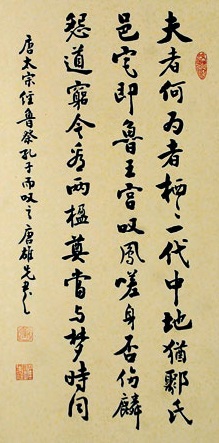 夫者何为者栖〻一代中地猶鄹氏
邑宅即魯王宫叹鳳嗟身否伤麟
怨道窮今看兩楹奠當与梦時同
唐太宗经魯祭孔子而叹之唐雄先书